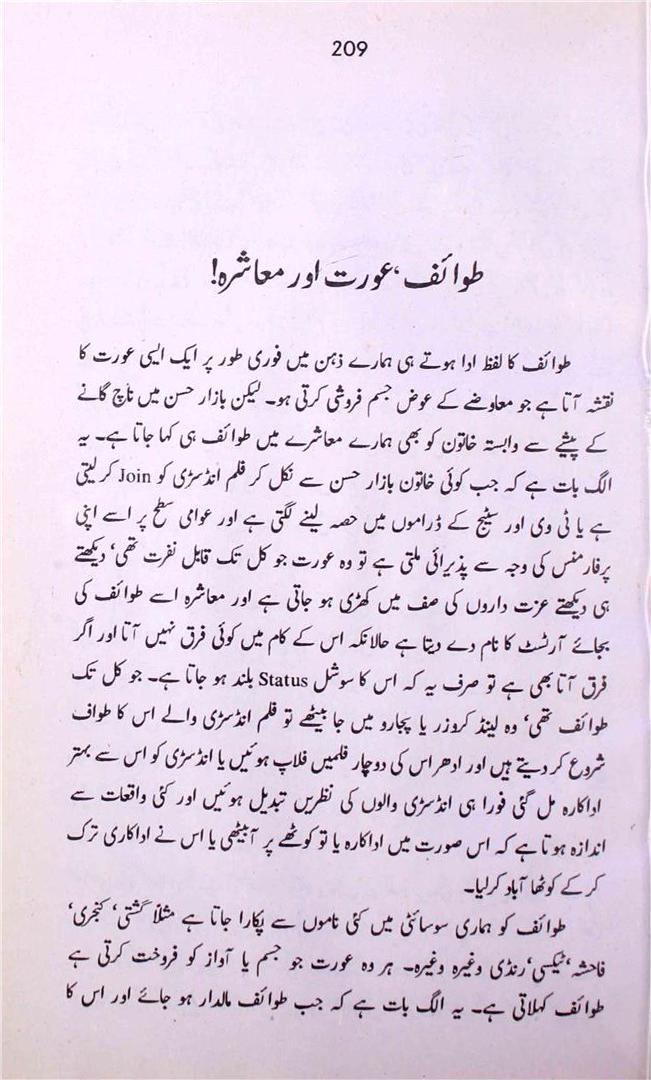 209
طوائف‘ عورت اور معاشرہ!
طوائف کا لفظ ادا ہوتے ہی ہمارے ذہن میں فوری طور پر ایک ایسی عورت کا
نقشہ آتا ہے جو معاوضے کے عوض جسم فروشی کرتی ہو۔ لیکن بازار حسن میں ناچ گانے
کے پیشے سے وابستہ خاتون کو بھی ہمارے معاشرے میں طوائف ہی کہا جاتا ہے۔ یہ
الگ بات ہے کہ جب کوئی خاتون بازار حسن سے نکل کر فلم انڈسڑی کو Join کر لیتی
ہے یا ٹی وی اور سٹیج کے ڈراموں میں حصہ لینے لگتی ہے اور عوامی سطح پر اسے اپنی
پرفارمنس کی وجہ سے پذیرائی ملتی ہے تو وہ عورت جو کل تک قابل نفرت تھی‘ دیکھتے
ہی دیکھتے عزت داروں کی صف میں کھڑی ہو جاتی ہے اور معاشرہ اسے طوائف کی
بجائے آرٹسٹ کا نام دے دیتا ہے حالانکہ اس کے کام میں کوئی فرق نہیں آتا اور اگر
فرق آتا بھی ہے تو صرف یہ کہ اس کا سوشل Status بلند ہو جاتا ہے۔ جو کل تک
طوائف تھی‘ وہ لینڈ کروزر یا پجارو میں جا بیٹھے تو فلم انڈسڑی والے اس کا طواف
شروع کر دیتے ہیں اور ادھر اس کی دوچار فلمیں فلاپ ہوئیں یا انڈسڑی کو اس سے بہتر
اداکارہ مل گئی فورا ہی انڈسڑی والوں کی نظریں تبدیل ہوئیں اور کئی واقعات سے
اندازہ ہوتا ہے کہ اس صورت میں اداکارہ یا تو کوٹھے پر آبیٹھی یا اس نے اداکاری ترک
کر کے کوٹھا آباد کرلیا۔
طوائف کو ہماری سوسائٹی میں کئی ناموں سے پکارا جاتا ہے مثلاً گشتی‘ کنجری‘
فاحشہ‘ ٹیکسی‘ رنڈی وغیرہ وغیرہ۔ ہر وہ عورت جو جسم یا آواز کو فروخت کرتی ہے
طوائف کہلاتی ہے۔ یہ الگ بات ہے کہ جب طوائف مالدار ہو جائے اور اس کا